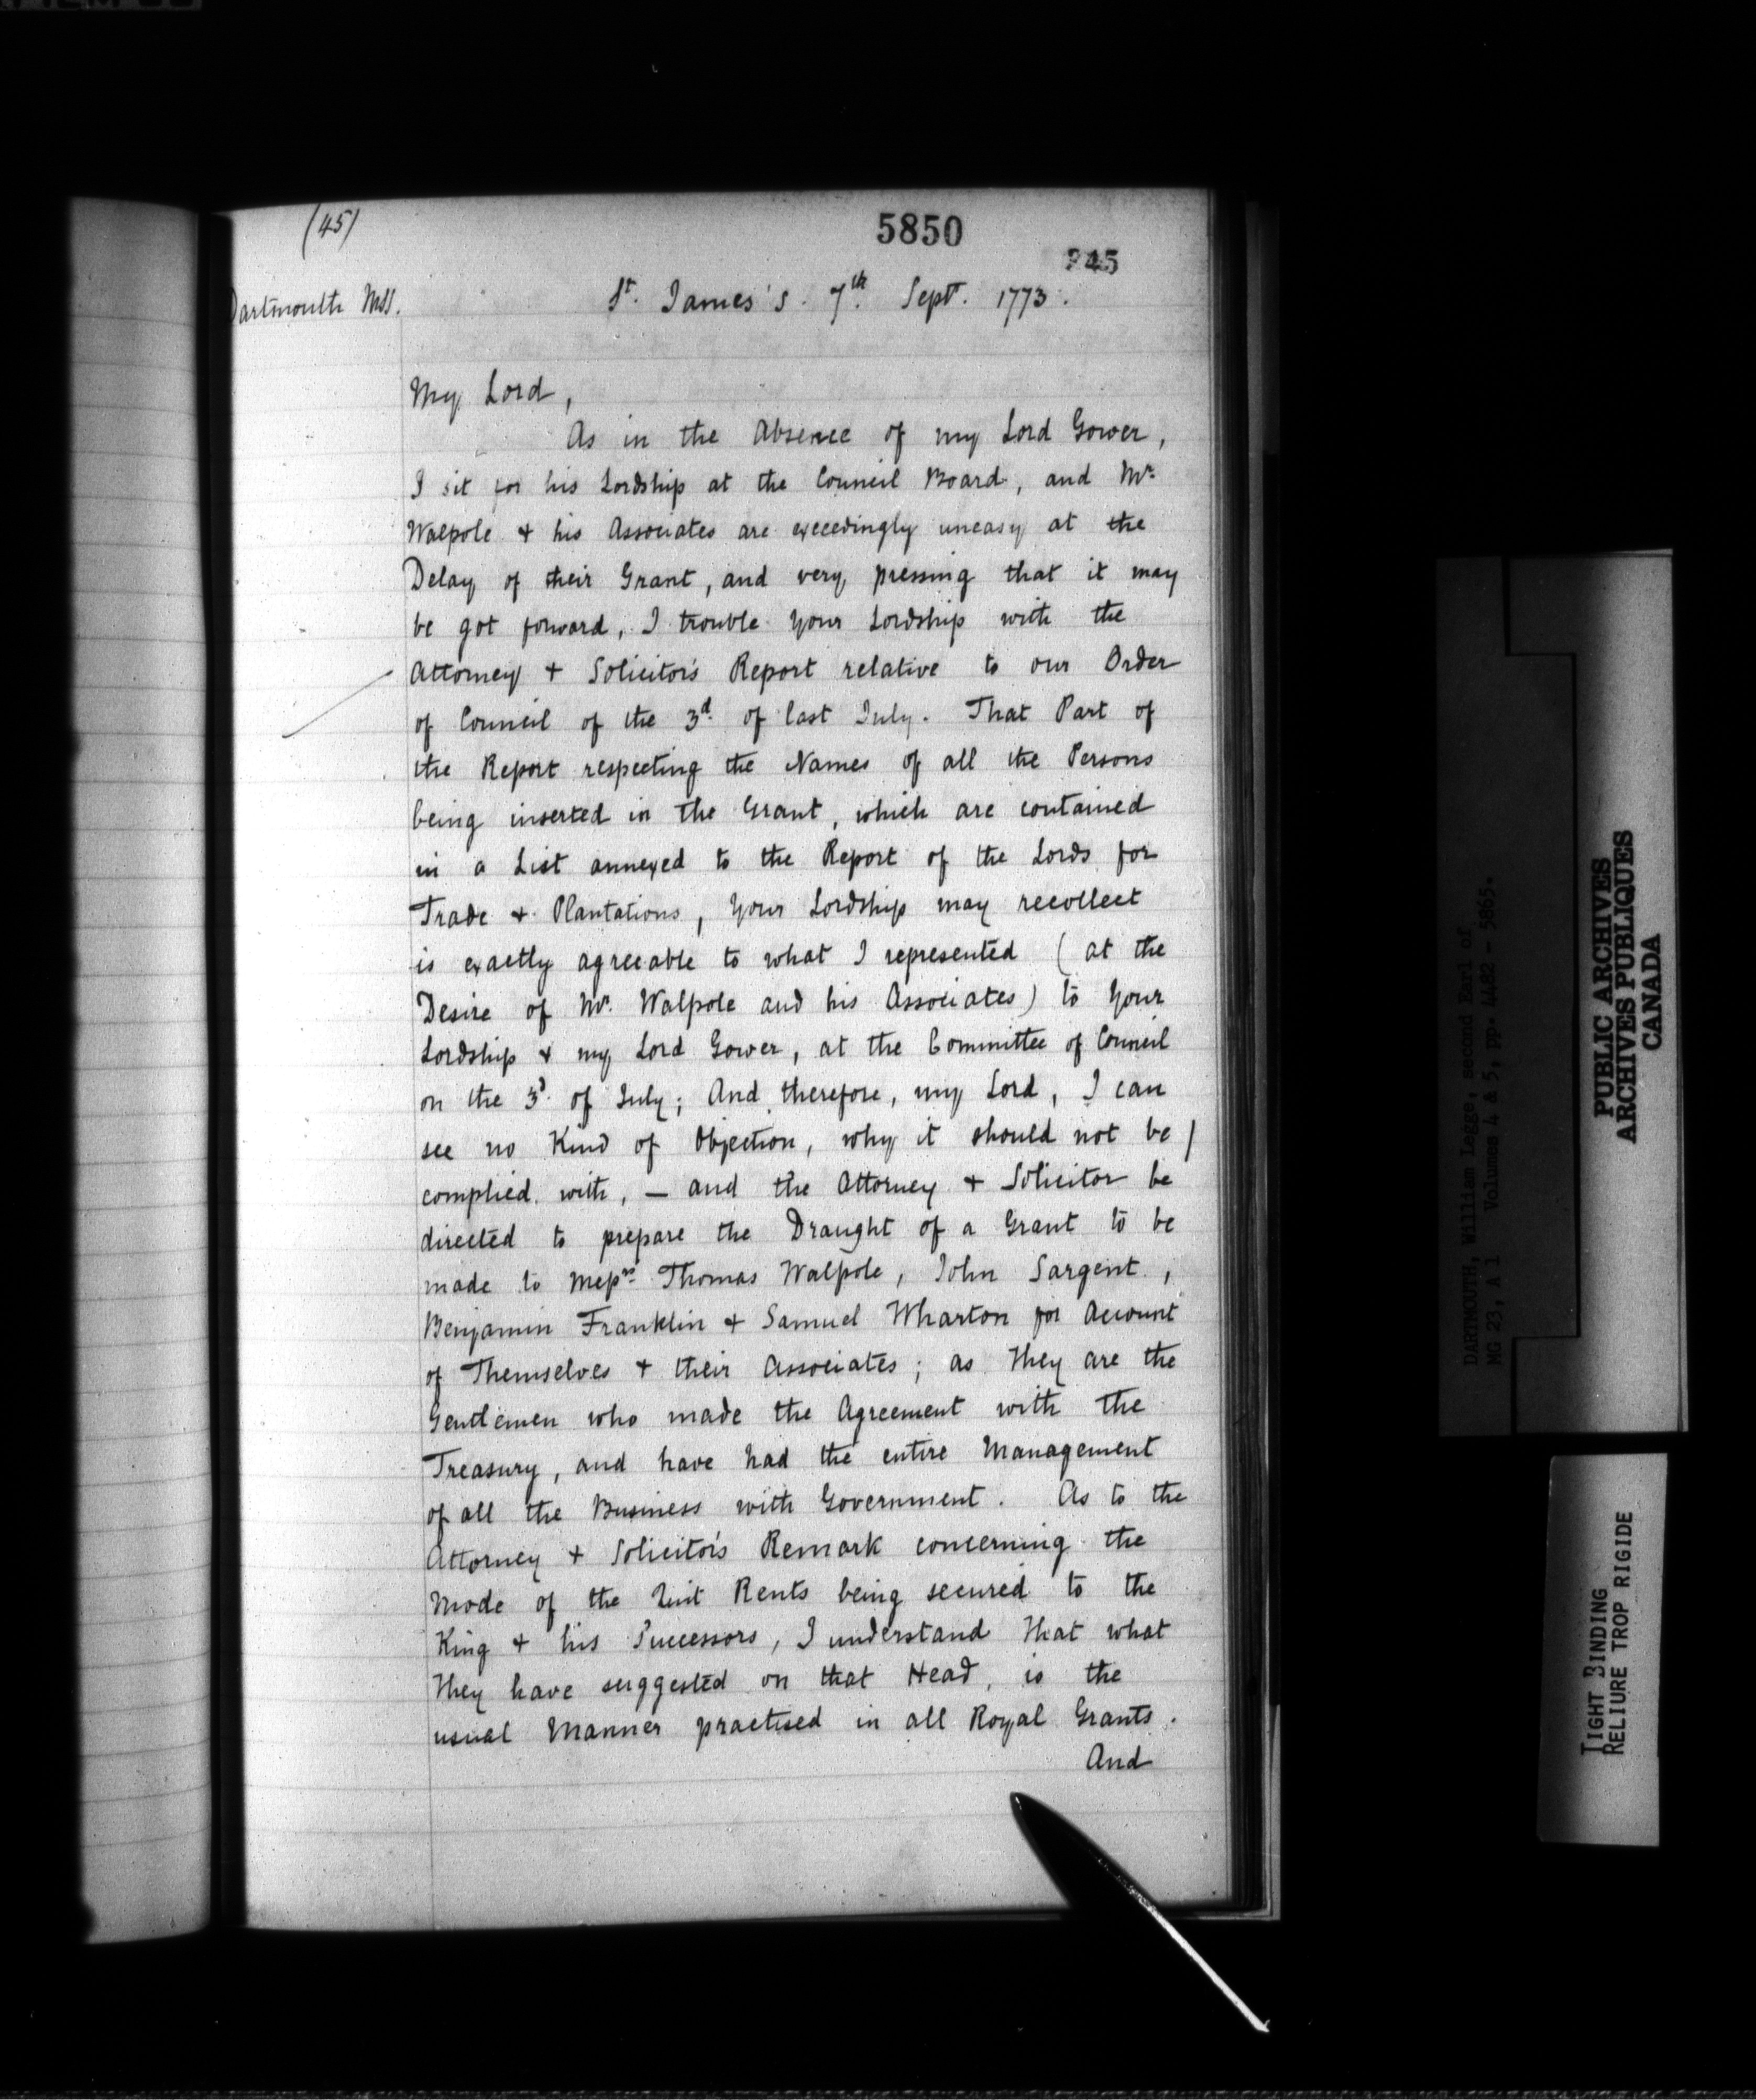 (45)
5850
245
Dartmouth Mss.
St. James's. 7th. Sept. 1773.
My Lord,
As in the Absence of my Lord Gower,
I sit for his Lordship at the Council Board, and Mr.
Walpole & his Associates are exceedingly uneasy at the
Delay of their Grant, and very pressing that it may
be got forward, I trouble Your Lordship with the
Attorney & Solicitor's Report relative to our Order
of Council of the 3d. of last July. That Part of
the Report respecting the Names of all the Persons
being inserted in the Grant, which are contained
in a List annexed to the Report of the Lords for
Trade & Plantations, Your Lordship may recollect
is exactly agreeable to what I represented (at the
Desire of Mr. Walpole and his Associates) to Your
Lordship & my Lord Gower, at the Committee of Council
on the 3d. of July; And therefore, my Lord, I can
see no Kind of Objection, why it should not be /
complied with, — and the Attorney & Solicitor be
directed to prepare the Draught of a Grant to be
made to Messrs. Thomas Walpole, John Sargent,
Benjamin Franklin & Samuel Wharton for Account
of Themselves & their Associates; as They are the
Gentlemen who made the Agreement with the
Treasury, and have had the entire Management
of all the Business with Government. As to the
Attorney & Solicitor's Remark concerning the
Mode of the Quit Rents being secured to the
King & his Successors, I understand that what
They have suggested on that Head, is the
usual Manner practised in all Royal Grants.
And
DARTMOUTH, William Legge, second Earl of
MG 23, A 1 Volumes 4 & 5, pp. 4482 - 5865.
PUBLIC ARCHIVES
ARCHIVES PUBLIQUES
CANADA
TIGHT BINDING
RELIURE TROP RIGIDE